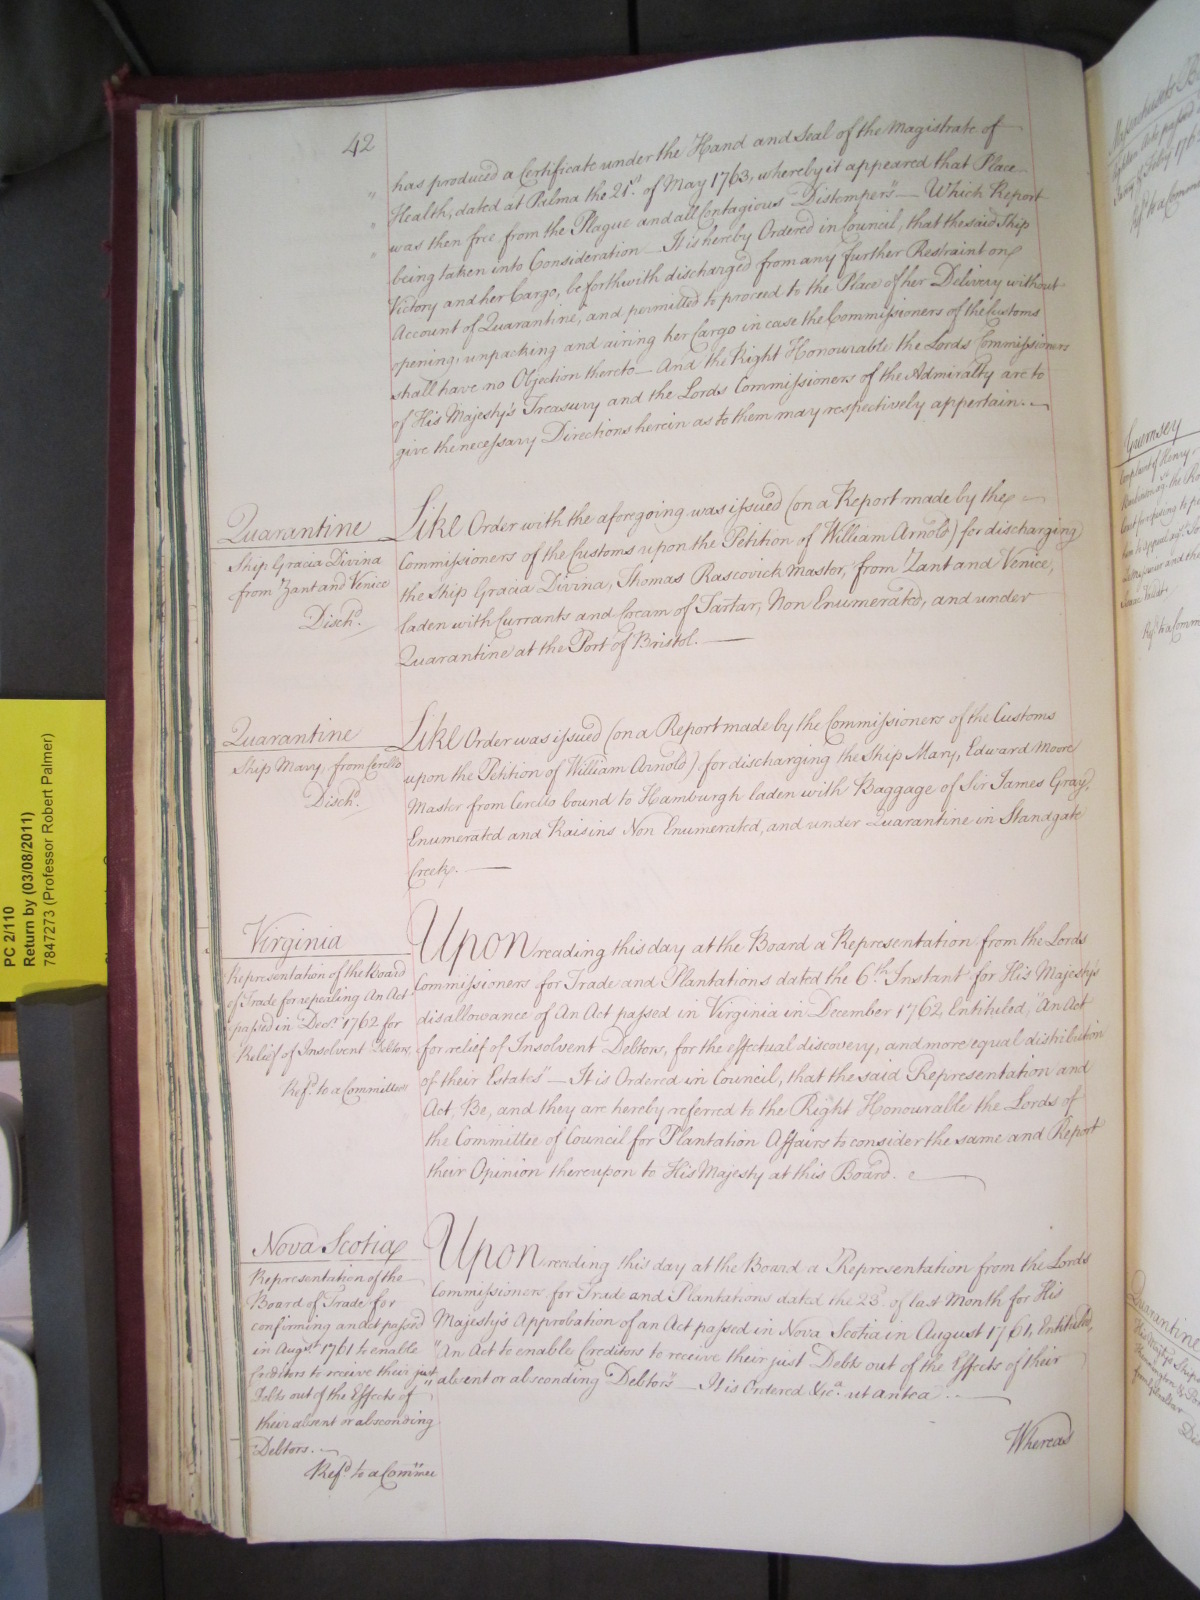 42
has produced a Certificate under the Hand and Seal of the Magistrate of
Health, dated at Palma the 21st. of May 1763, whereby it appeared that Place
was then free from the Plague and all Contagious Distempers" — Which Report
being taken into Consideration — It is hereby Ordered in Council, that the said Ship
Victory and her Cargo, be forthwith discharged from any further Restraint on
Account of Quarantine, and permitted to proceed to the Place of her Delivery without
opening, unpacking and airing her Cargo in case the Commissioners of the Customs
shall have no Objection thereto — And the Right Honourable the Lords Commissioners
of His Majesty's Treasury and the Lords Commissioners of the Admiralty are to
give the necessary Directions herein as to them may respectively appertain. —
Quarantine
Ship Gracia Divina
from Zant and Venice
Disch^d.
Like Order with the aforegoing was issued (on a Report made by the
Commissioners of the Customs upon the Petition of William Arnold) for discharging
the Ship Gracia Divina, Thomas Rascovick Master, from Zant and Venice,
laden with Currants and Cream of Tartar, Non Enumerated, and under
Quarantine at the Port of Bristol. —
Quarantine
Ship Mary, from Cerello
Disch^d.
Like Order was issued (on a Report made by the Commissioners of the Customs
upon the Petition of William Arnold) for discharging the Ship Mary, Edward Moore
Master from Cerello bound to Hamburgh laden with Baggage of Sir James Gray,
Enumerated and Raisins Non Enumerated, and under Quarantine in Standgate
Creek. —
Virginia
Representation of the Board
of Trade for repealing An Act
passed in Dec^r. 1762 for
Relief of Insolvent Debtors
Ref^d. to a Committee
Upon reading this day at the Board a Representation from the Lords
Commissioners for Trade and Plantations dated the 6th. Instant for His Majesty's
disallowance of An Act passed in Virginia in December 1762, Entituled, "An Act
for relief of Insolvent Debtors, for the effectual discovery, and more equal distribution
of their Estates" — It is Ordered in Council, that the said Representation and
Act, Be, and they are hereby referred to the Right Honourable the Lords of
the Committee of Council for Plantation Affairs to consider the same and Report
their Opinion thereupon to His Majesty at this Board. —
Nova Scotia
Representation of the
Board of Trade for
confirming an Act passed
in Augst. 1761 to enable
Creditors to receive their just
Debts out of the Effects of
their absent or absconding
Debtors. —
Ref^d. to a Com^mee
Upon reading this day at the Board a Representation from the Lords
Commissioners for Trade and Plantations dated the 23^d. of last Month for His
Majesty's Approbation of an Act passed in Nova Scotia in August 1761, Entituled,
"An Act to enable Creditors to receive their just Debts out of the Effects of their
"absent or absconding Debtors" — It is Ordered &ca. ut antea —
Whereas
PC 2/110
Return by (03/08/2011)
7847273 (Professor Robert Palmer)
Guernsey
Quarantine